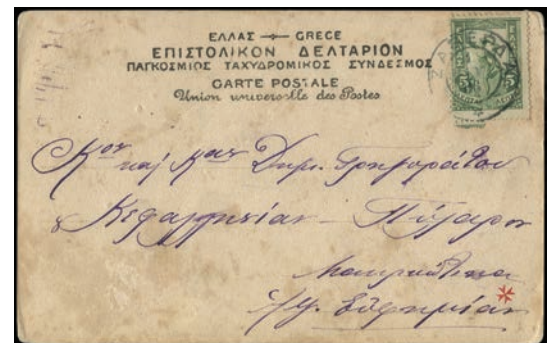 ΕΛΛΑΣ GRECE
ΕΠΙΣΤΟΛΙΚΟΝ ΔΕΛΤΑΡΙΟΝ
ΠΑΓΚΟΣΜΙΟΣ ΤΑΧΥΔΡΟΜΙΚΟΣ ΣΥΝΔΕΣΜΟΣ
CARTE POSTALE
Union universelle des Postes
ΖΑΒΕΡΔΑ
ΕΛΛΑΣ
5 5
Κον καί Καν Δημ. Γρηγοράτον
Κεφαλληνίαν - Πύλαρον
Μακρυώτικα
Εὐφημίαν